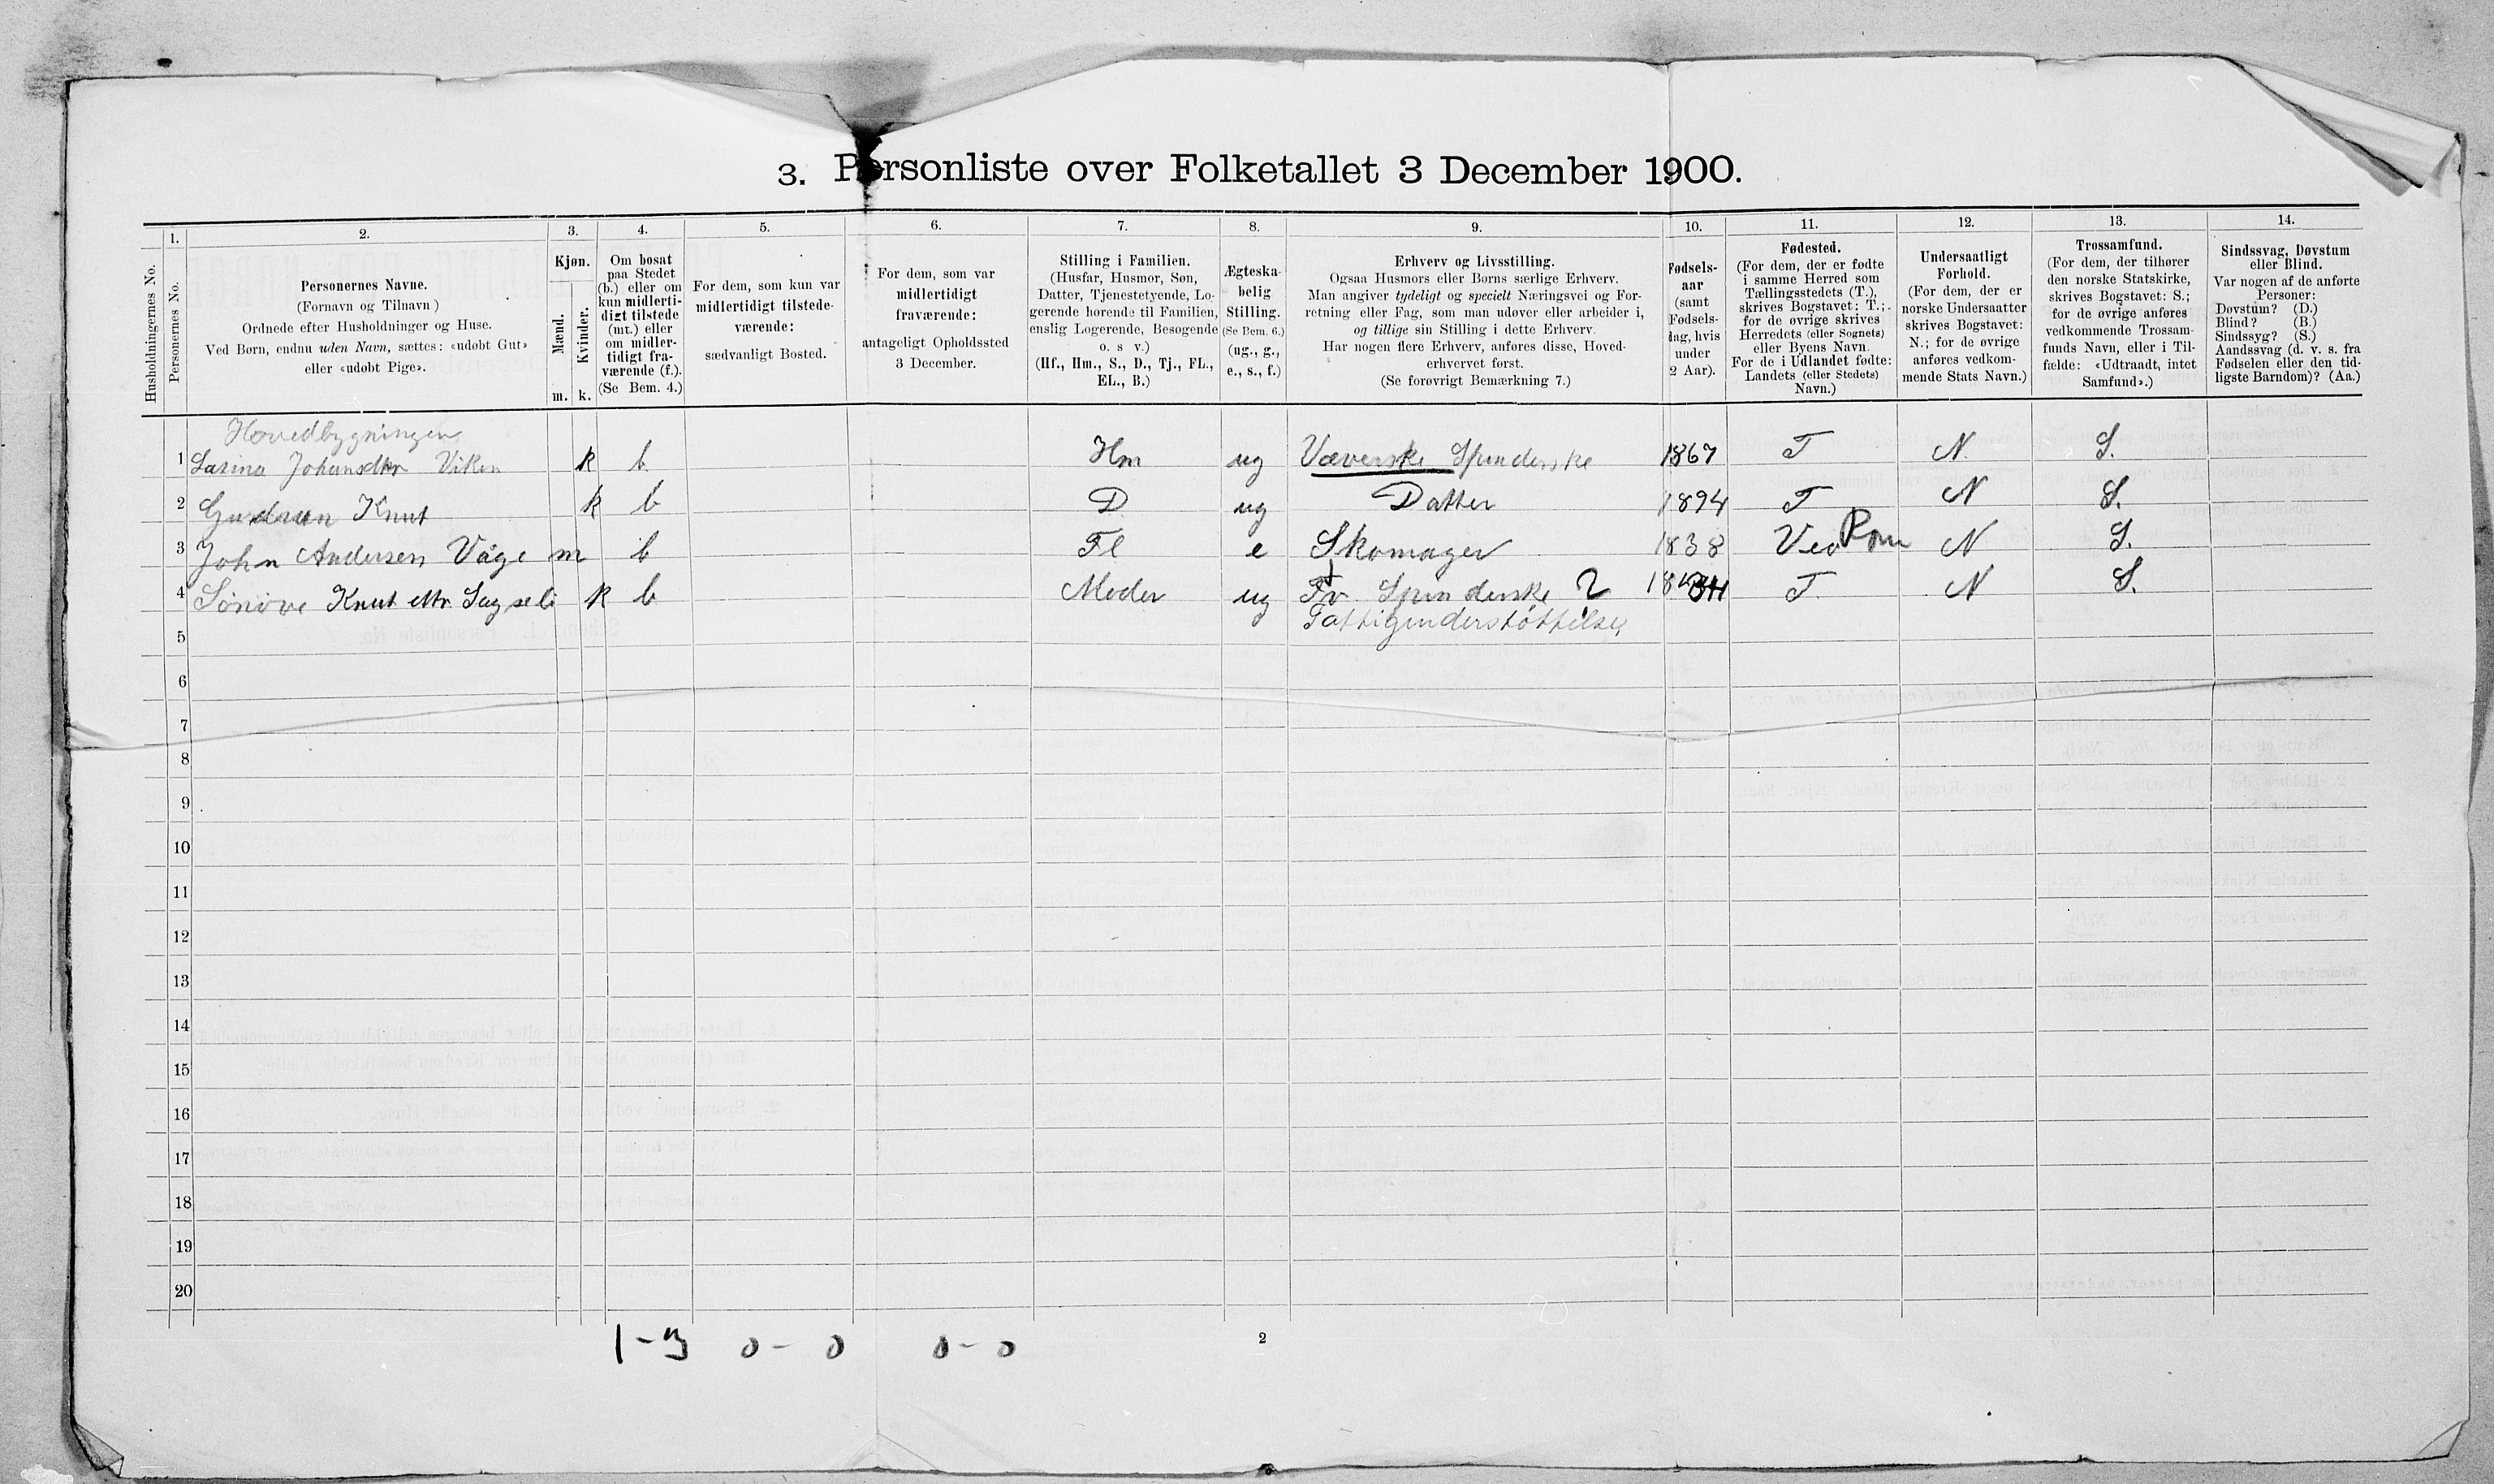 3. Personliste over Folketallet 3 December 1900.
Husholdningernes No.
1.
Personernes No.
2.
Personernes Navne.
(Fornavn og Tilnavn)
Ordnede efter Husholdninger og Huse.
Ved Børn, endnu uden Navn, sættes: «udøbt Gut»
eller «udøbt Pige».
3.
Kjøn.
Mænd.
Kvinder.
m. k.
4.
Om bosat
paa Stedet
(b.) eller om
kun midlerti-
digt tilstede
(mt.) eller
om midler-
tidigt fra-
værende (f.).
(Se Bem. 4.)
5.
For dem, som kun var
midlertidigt tilstede-
værende:
sædvanligt Bosted.
6.
For dem, som var
midlertidigt
fraværende:
antageligt Opholdssted
3 December.
7.
Stilling i Familien.
(Husfar, Husmor, Søn,
Datter, Tjenestetyende, Lo-
gerende hørende til Familien,
enslig Logerende, Besøgende
o. s v.)
(Hf., Hm., S., D., Tj., FL.,
EL., B.)
8.
Ægteska-
belig
Stilling.
(Se Bem. 6.)
(ug., g.,
e., s., f.)
9.
Erhverv og Livsstilling.
Ogsaa Husmors eller Børns særlige Erhverv.
Man angiver tydeligt og specielt Næringsvei og For-
retning eller Fag, som man udøver eller arbeider i,
og tillige sin Stilling i dette Erhverv.
Har nogen flere Erhverv, anføres disse, Hoved-
erhvervet først.
(Se forøvrigt Bemærkning 7.)
10.
Fødsels-
aar
(samt
Fødsels-
dag, hvis
under
2 Aar).
11.
Fødested.
(For dem, der er fødte
i samme Herred som
Tællingsstedets (T.),
skrives Bogstavet: T.;
for de øvrige skrives
Herredets (eller Sognets)
eller Byens Navn.
For de i Udlandet fødte:
Landets (eller Stedets)
Navn.)
12.
Undersaatligt
Forhold.
(For dem, der er
norske Undersaatter
skrives Bogstavet:
N.; for de øvrige
anføres vedkom-
mende Stats Navn.)
13.
Trossamfund.
(For dem, der tilhører
den norske Statskirke,
skrives Bogstavet: S.;
for de øvrige anføres
vedkommende Trossam-
funds Navn, eller i Til-
fælde: «Udtraadt, intet
Samfund».)
14.
Sindssvag, Døvstum
eller Blind.
Var nogen af de anførte
Personer:
Døvstum? (D.)
Blind? (B.)
Sindssyg? (S.)
Aandssvag (d. v. s. fra
Fødselen eller den tid-
ligste Barndom)? (Aa.)
Hovedbygningen
1 Johansdtr Viken k b Hm ug Væverske Spinderske 1867 T N. S.
2 Gudrun Knut k b D ug Datter 1894 T N S.
3 John Andersen Våge m b Fl e Skomager 1838 N S.
4 Sønøve Knut dtr k b Moder ug Fv. Spinderske 2 T. N S.
Fattigunderstøttelse
5
6
7
8
9
10
11
12
13
14
15
16
17
18
19
20
1-3 0-0 0-0
2